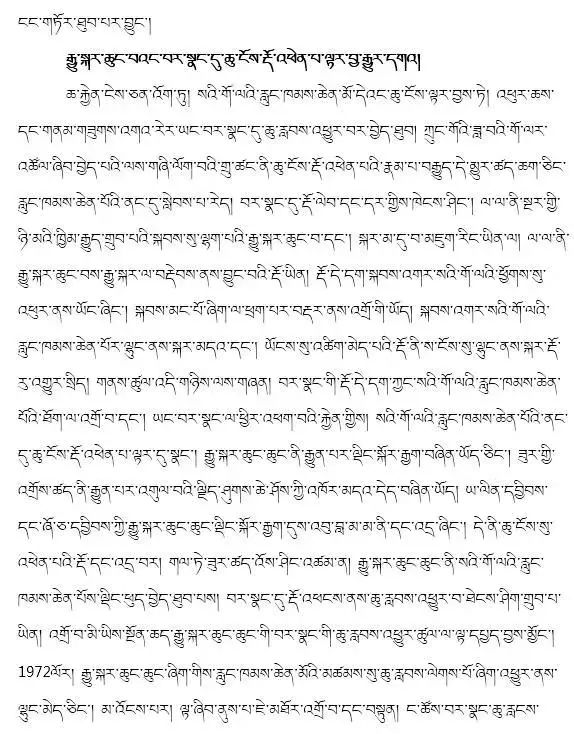 ངང་གཏོར་ཐུབ་པར་བྱུང་།
རྒྱུ་སྐར་ཆུང་བའང་བར་སྣང་དུ་ཆུ་ངོས་རྡོ་འཕེན་པ་ལྟར་བྱ་རྒྱུར་དགའ།
ཆ་རྐྱེན་ངེས་ཅན་འོག་ཏུ། སའི་གོ་ལའི་རླུང་ཁམས་ཆེན་མོ་དེའང་ཆུ་ངོས་ལྟར་བྱས་ཏེ། འཕུར་ཆས་
དང་གནམ་གཟུགས་འགའ་རེར་ཡང་བར་སྣང་དུ་ཆུ་རླབས་འཕྱུར་བར་བྱེད་ཐུབ། ཀྲུང་གོའི་ཟླ་བའི་གོ་ལར་
འཚོལ་ཞིབ་བྱེད་པའི་ལས་གཞི་ལོག་བའི་གྲུ་ཚང་ནི་ཆུ་ངོས་རྡོ་འཕེན་པའི་རྣམ་པ་བརྒྱུད་དེ་མྱུར་ཚད་ཆག་ཅིང་
རླུང་ཁམས་ཆེན་པོའི་ནང་དུ་སླེབས་པ་རེད། བར་སྣང་དུ་རྡོ་ལེབ་དང་དར་གྱིས་ཁེངས་ཤིང་། ལ་ལ་ནི་སྔར་གྱི་
ཉི་མའི་ཁྱིམ་རྒྱུད་གྲུབ་པའི་སྐབས་སུ་ལྷག་པའི་རྒྱུ་སྐར་ཆུང་བ་དང་། སྐར་མ་དུ་བ་མཇུག་རིང་ཡིན་ལ། ལ་ལ་ནི་
རྒྱུ་སྐར་ཆུང་བས་རྒྱུ་སྐར་ལ་བརྡེབས་ནས་བྱུང་བའི་རྡོ་ཡིན། རྡོ་དེ་དག་སྐབས་འགར་སའི་གོ་ལའི་ཕྱོགས་སུ་
འཕུར་ནས་ཡོང་ཞིང་། སྐབས་མང་པོ་ཞིག་ལ་ཕྲག་པར་བརྡར་ནས་འགྲོ་གི་ཡོད། སྐབས་འགར་སའི་གོ་ལའི་
རླུང་ཁམས་ཆེན་པོར་ལྷུང་ནས་སྐར་མདའ་དང་། ཡོངས་སུ་འཚིག་མེད་པའི་རྡོ་ནི་ས་ངོས་སུ་ལྷུང་ནས་སྐར་རྡོ་
རུ་འགྱུར་སྲིད། གནས་ཚུལ་འདི་གཉིས་ལས་གཞན། བར་སྣང་གི་རྡོ་དེ་དག་ཀྱང་སའི་གོ་ལའི་རླུང་ཁམས་ཆེན་
པོའི་ཐོག་ལ་འགྲོ་བ་དང་། ཡང་བར་སྣང་ལ་ཕྱིར་འཕག་བའི་རྐྱེན་གྱིས། སའི་གོ་ལའི་རླུང་ཁམས་ཆེན་པོའི་ནང་
དུ་ཆུ་ངོས་རྡོ་འཕེན་པ་ལྟར་དུ་སྣང་། རྒྱུ་སྐར་ཆུང་ཆུང་ནི་རྒྱུན་པར་ལྡིང་སྐོར་རྒྱག་བཞིན་ཡོད་ཅིང་། ཟུར་གྱི་
འགྲོས་ཚད་ནི་རྒྱུན་པར་འགུལ་བའི་ལྗིད་ཤུགས་ཆེ་ཤོས་ཀྱི་འཁོར་མདའ་དེད་བཞིན་ཡོད། ཡ་ལིན་དབྱིབས་
དང་ཞོ་ཅ་དབྱིབས་ཀྱི་རྒྱུ་སྐར་ཆུང་ཆུང་ལྡིང་སྐོར་རྒྱག་དུས་འབུ་བླ་མ་མ་ནི་དང་འདྲ་ཞིང་། དེ་ནི་ཆུ་ངོས་སུ་
འཕེན་པའི་རྡོ་དང་འདྲ་བར། གལ་ཏེ་ཟུར་ཚད་འོས་ཤིང་འཚམ་ན། རྒྱུ་སྐར་ཆུང་ཆུང་ནི་སའི་གོ་ལའི་རླུང་
ཁམས་ཆེན་པོས་ལྡིང་ཕུད་བྱེད་ཐུབ་པས། བར་སྣང་དུ་རྡོ་འཕངས་ནས་ཆུ་རླབས་འཕྱུར་བ་ཐེངས་ཤིག་གྲུབ་པ་
ཡིན། འགྲོ་བ་མི་ཡིས་སྔོན་ཆད་རྒྱུ་སྐར་ཆུང་ཆུང་གི་བར་སྣང་གི་ཆུ་རླབས་འཕྱུར་ཚུལ་ལ་ལྟ་དཔྱད་བྱས་མྱོང་།
1972ལོར། རྒྱུ་སྐར་ཆུང་ཆུང་ཞིག་གིས་རླུང་ཁམས་ཆེན་མོའི་མཚམས་སུ་ཆུ་རླབས་ལེགས་པོ་ཞིག་འཕྱུར་ནས་
ལྷུང་མེད་ཅིང་། མ་འོངས་པར། ལྟ་ཞིབ་ནུས་པ་ཇེ་མཐོར་འགྲོ་བ་དང་བསྟུན། ང་ཚོས་བར་སྣང་ཆུ་རླངས་